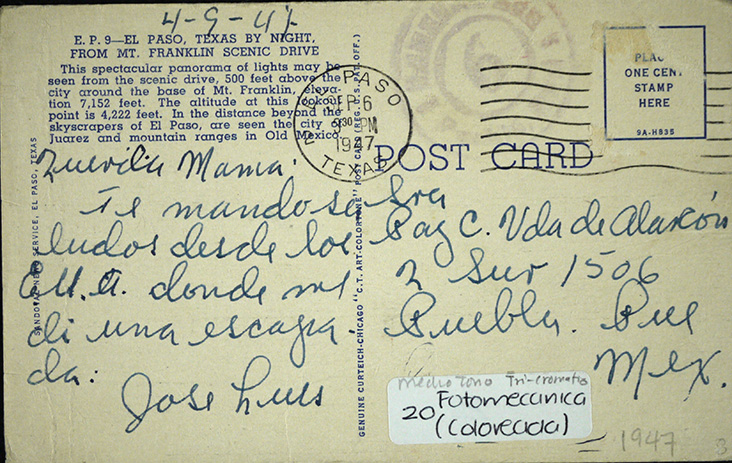 4-9-47
E. P. 9—EL PASO, TEXAS BY NIGHT,
FROM MT. FRANKLIN SCENIC DRIVE
This spectacular panorama of lights may be
seen from the scenic drive, 500 feet above the
city around the base of Mt. Franklin, eleva-
tion 7,152 feet. The altitude at this lookout
point is 4,222 feet. In the distance beyond the
skyscrapers of El Paso, are seen the city of
Juarez and mountain ranges in Old Mexico.
Querida Mama:
Te mando sa
ludos desde los
E.U.A. donde me
di una escapa
da:
Jose Luis
SANDOVAL NEWS SERVICE, EL PASO, TEXAS
GENUINE CURTEICH-CHICAGO "C.T. ART-COLORTONE" POST CARD (REG. U.S. PAT. OFF.)
EL PASO
SEP 6
PM
1947
TEXAS
PLACE
ONE CENT
STAMP
HERE
9A-H835
POST CARD
Sra
Paz C. Vda de Alarcón
2 Sur 1506
Puebla. Pue
Mex.
Medio Tono Tri-cromatico
20 Fotomeccinica
(Coloreada)
1947